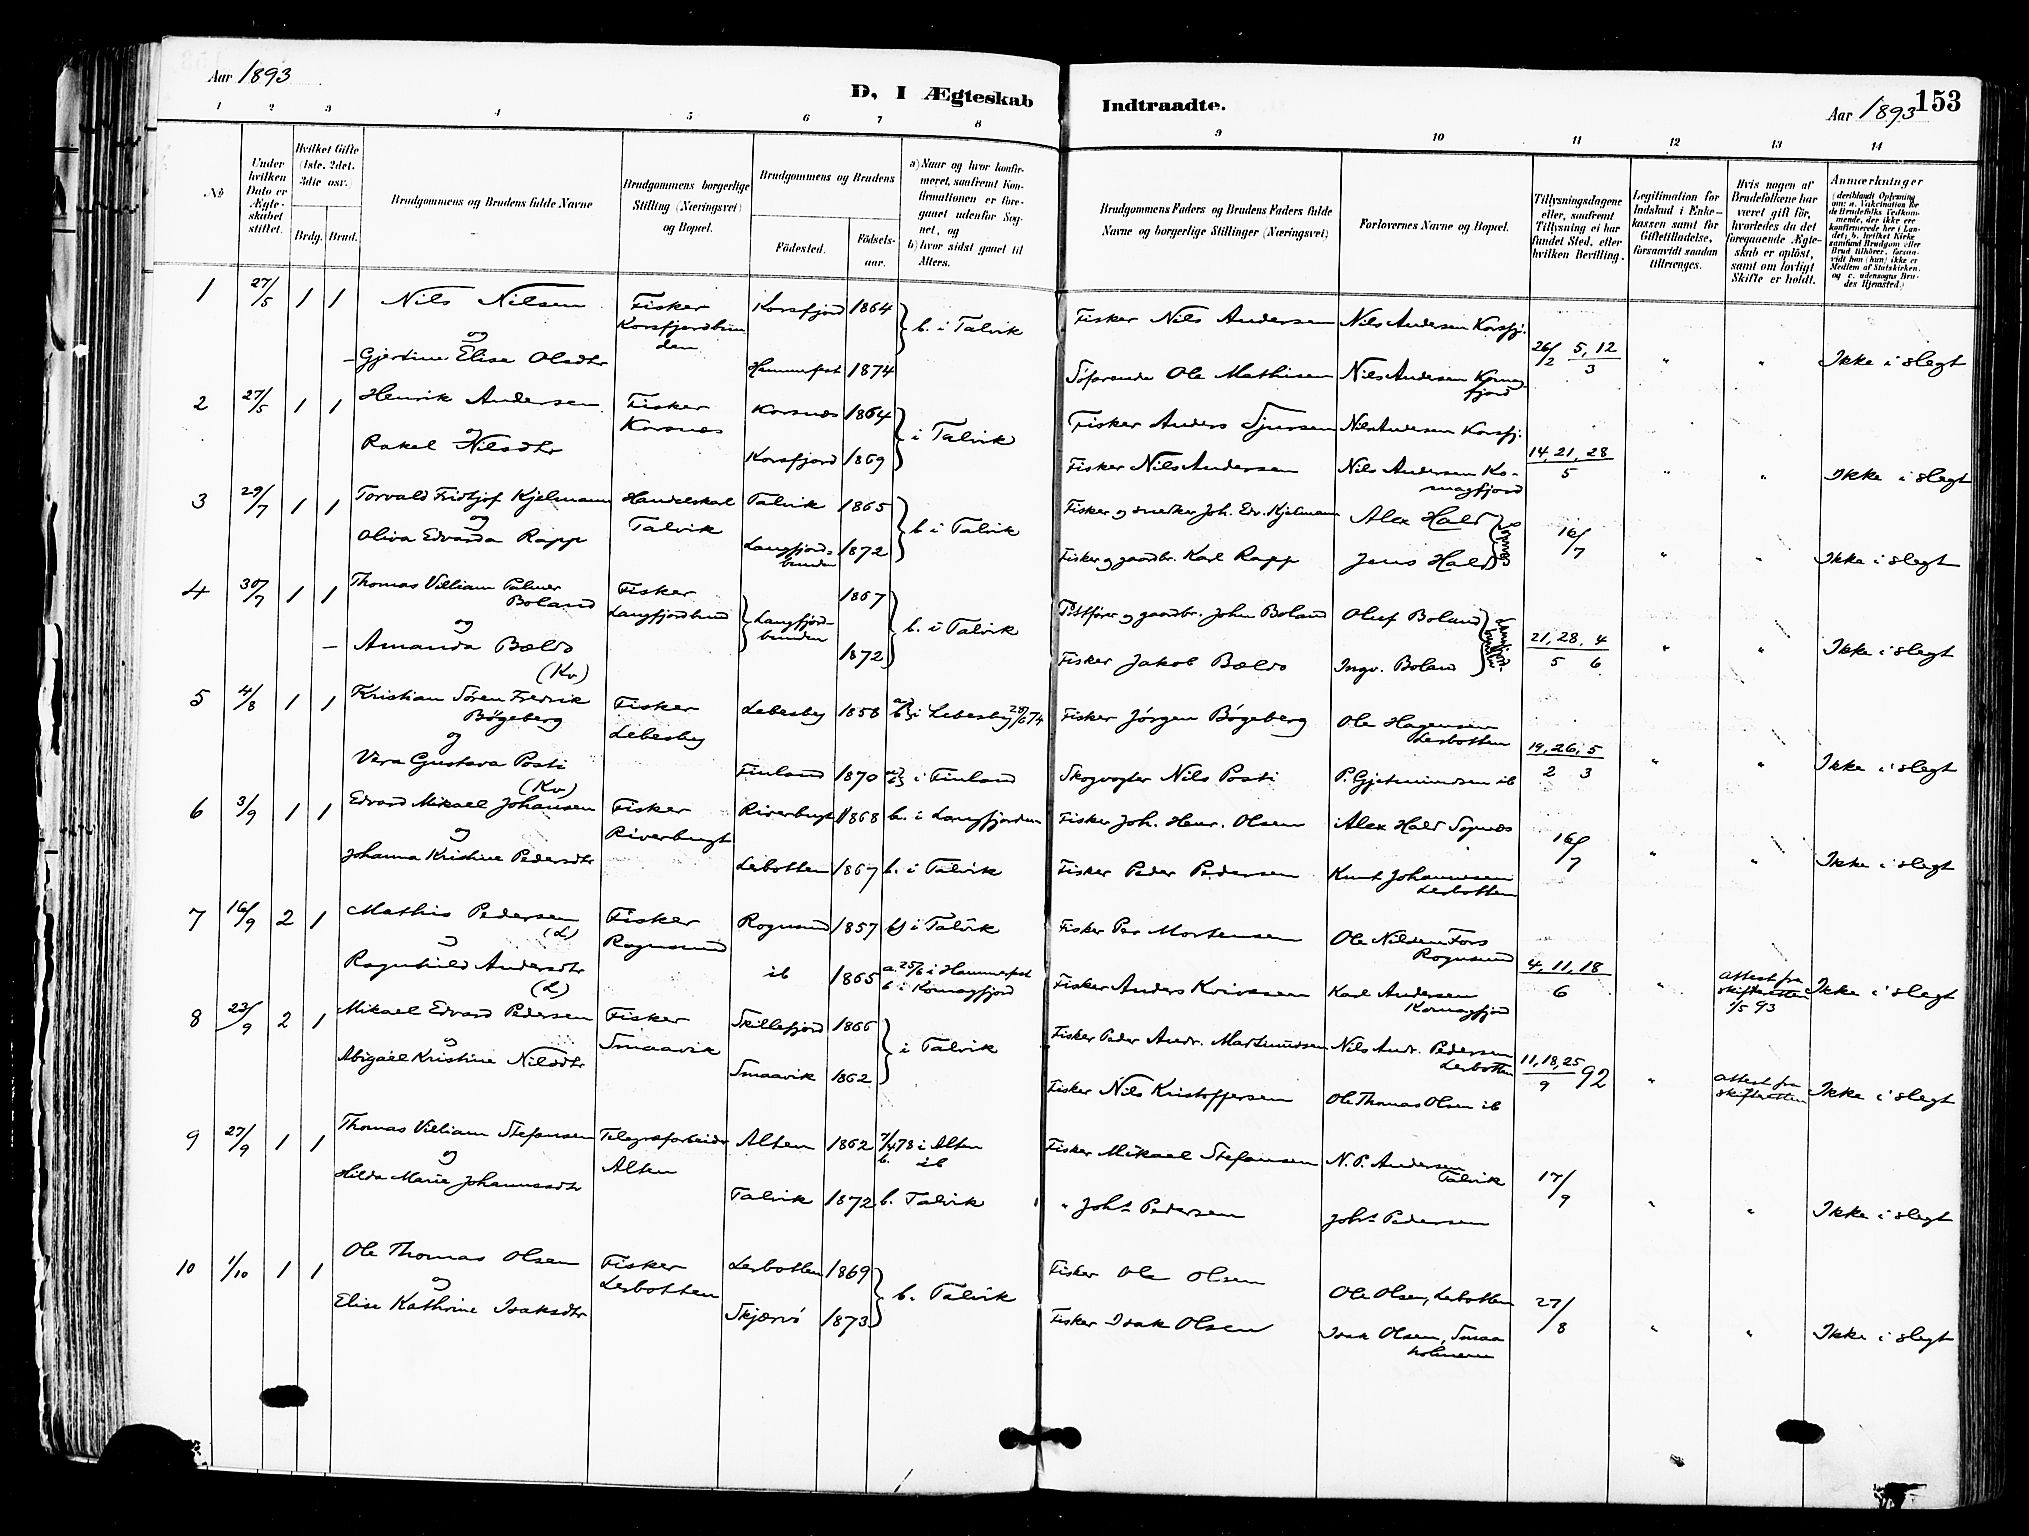 Aar 1893
D. I Ægteskab Indtraadte.
Aar 1893 153
1 2 3 4 5 6 7 8 9 10 11 12 13 14
No
Under hvilken Dato er Ægteskabet stiftet.
Hvilket Gifte (1ste, 2det, 3die osv.
Brdg. Brud.
Brudgommens og Brudens fulde Navne
Brudgommens borgerlige Stilling (Næringsvei) og Bopæl.
Brudgommens og Brudens
Fødested. Fødsels-aar.
a) Naar og hvor konfirmeret, saafremt Konfirmationen er foregaaet udenfor Sognet, og
b) hvor sidst gaaet til Alters.
Brudgommens Faders og Brudens Faders fulde Navne og borgerlige Stillinger (Næringsvei)
Forlovernes Navne og Bopæl.
Tillysningsdagene eller, saafremt Tillysning ei har fundet Sted, efter hvilken Bevilling.
Legitimation for Indskud i Enkekassen samt for Giftetilladelse, forsaavidt saadan tiltrænges.
Hvis nogen af Brudefolkene har været gift før, hvorledes da det foregaaende Ægteskab er opløst, samt om lovligt Skifte er holdt.
Anmærkninger (deriblandt Oplysning om: a. Vaksination for de Brudefolks Vedkommende, der ikke ere konfirmerede her i Landet; b. hvilket Kirkesamfund Brudgom eller Brud tilhører, forsaavidt han (hun) ikke er Medlem af Statskirken, og c. udensogns Brudes Hjemsted.)
1 27/5 1 1 Nils Nilsen Fisker Korsfjord 1864 b. i Talvik Fisker Nils Andersen Nils Andersen Korsfj.
og Korsfjordbunden 26/2 5, 12/3 " " Ikke i slegt
Gjertine Elise Olsdtr Hammerfest 1874 Søfarende Ole Mathisen Nils Andersen Komagfjord
2 27/5 1 1 Henrik Andersen Fisker Korsnes 1864 i Talvik Fisker Anders Sjursen Nils Andersen Korsfj.
o Korsnes 14, 21, 28/5 " " Ikke i slegt
Rakel Nilsdtr Korsfjord 1869 Fisker Nils Andersen Nils Andersen Komagfjord
3 29/7 1 1 Torvald Fridtjof Kjelmann Handelskarl Talvik 1865 b i Talvik Fisker og snedker Joh. Edv. Kjelmann Alex Hald
og Talvik 16/7 " " Ikke i slegt
Oliva Edvarda Rapp Langfjordbunden 1872 Fisker og gaardbr. Karl Rapp Jens Hald
4 30/7 1 1 Thomas Villiam Palmer Boland Fisker Langfjordbund Langfjordbunden 1867 b. i Talvik gaardbr. John Boland Oluf Boland
og 21, 28/5 4/6 " " Ikke i slegt
Amanda Bælds (Kv) 1872 Fisker Jakob Bælds Ingv. Boland
5 4/8 1 1 Kristian Søren Fredrik Bøgeberg Fisker Lebesby Lebesby 1858 i Lebesby Fisker Jørgen Bøgeberg Ole Hagensen Lerbotten
og 19, 26/2, 5/3 " " Ikke i slegt
Vera Gustava Posti (Kv) Finland 1870 i Finland Skogvogter Nils Posti P. Gjetmundsen ib
6 3/9 1 1 Edvard Mikael Johansen Fisker Riverbugt 1868 b. i Langfjorden Fisker Joh. Henr. Olsen Alex Hald Sopnes
og Riverbugt 16/7 " " Ikke i slegt
Johanna Kristine Pedersdtr Lerbotten 1867 b. i Talvik Fisker Peder Pedersen Knut Johannesen Lerbotten
7 16/9 2 1 Mathis Pedersen (L) Fisker Rognsund 1857 b i Talvik Fisker Per Mortensen Ole Nilsen Fors Rognsund
Rognsund 4, 11, 18/6 " attest fra skifteretten 1/5 93 Ikke i slegt
Ragnhild Andersdtr (L) ib 1865 a. 25/6 i Hammerfest b i Komagfjord Fisker Anders Karl Andersen Komagfjord
8 23/9 2 1 Mikael Edvard Pedersen Fisker Skillefjord 1866 i Talvik Fisker Peder Andr. Mortensen Nils Andr. Pedersen Lerbotten
Smaavik 11, 18, 25/9 92 " attest fra skifteretten Ikke i slegt
Abigael Kristine Nilsdtr Smaavik 1862 Fisker Nils Kristoffersen Ole Thomas Olsen ib
9 27/9 1 1 Thomas Villiam Stefansen Telegrafarbeider Alten 1862 7/4 78 i Alten b. ib Fisker Mikael Stefansen N. P. Andersen Talvik
og Alten 17/9 " " Ikke i slegt
Hilda Marie Johannesdtr Talvik 1872 b. Talvik " Johs Pedersen Johs Pedersen
10 1/10 1 1 Ole Thomas Olsen Fisker Lerbotten 1869 b. Talvik Fisker Ole Olsen Ole Olsen, Lerbotten
og Lerbotten 27/8 " " Ikke i slegt
Elise Kathrine Isaksdtr Skjærvø 1873 Fisker Isak Olsen Isak Olsen, Smaaholmene